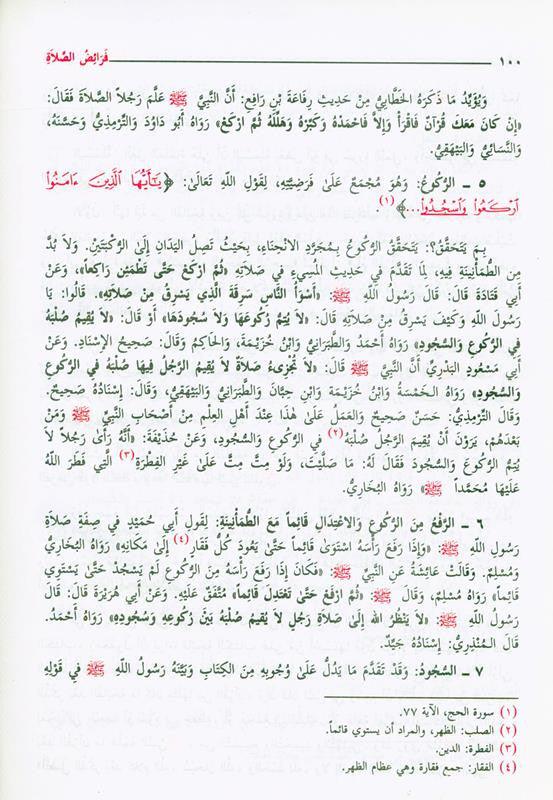 ١٠٠ فَرَائِضُ الصَّلَاةِ
وَيُؤَيِّدُ مَا ذَكَرَهُ الخَطَّابِيُّ مِنْ حَدِيثِ رِفَاعَةَ بْنِ رَافِعٍ: أَنَّ النَّبِيَّ ﷺ عَلَّمَ رَجُلاً الصَّلَاةَ فَقَالَ:
«إِنْ كَانَ مَعَكَ قُرْآنٌ فَاقْرَأْ وَإِلاَّ فَاحْمَدْهُ وَكَبِّرْهُ وَهَلِّلْهُ ثُمَّ ارْكَعْ» رَوَاهُ أَبُو دَاوُدَ وَالتِّرْمِذِيُّ وَحَسَّنَهُ،
وَالنَّسَائِيُّ وَالبَيْهَقِيُّ.
٥ ـ الرُّكُوعُ: وَهُوَ مُجْمَعٌ عَلَىٰ فَرَضِيَّتِهِ، لِقَوْلِ اللَّهِ تَعَالَىٰ: ﴿يَٰٓأَيُّهَا ٱلَّذِينَ ءَامَنُوا۟
ٱرْكَعُوا۟ وَٱسْجُدُوا۟...﴾(١).
بِمَ يَتَحَقَّقُ؟: يَتَحَقَّقُ الرُّكُوعُ بِمُجَرَّدِ الانْحِنَاءِ، بِحَيْثُ تَصِلُ اليَدَانِ إِلَىٰ الرُّكْبَتَيْنِ. وَلَا بُدَّ
مِنَ الطُّمَأْنِينَةِ فِيهِ، لِمَا تَقَدَّمَ فِي حَدِيثِ المُسِيءِ فِي صَلَاتِهِ «ثُمَّ ارْكَعْ حَتَّى تَطْمَئِنَّ رَاكِعاً»، وَعَنْ
أَبِي قَتَادَةَ قَالَ: قَالَ رَسُولُ اللَّهِ ﷺ: «أَسْوَأُ النَّاسِ سَرِقَةً الَّذِي يَسْرِقُ مِنْ صَلَاتِهِ». قَالُوا: يَا
رَسُولَ اللَّهِ وَكَيْفَ يَسْرِقُ مِنْ صَلَاتِهِ قَالَ: «لَا يُتِمُّ رُكُوعَهَا وَلَا سُجُودَهَا» أَوْ قَالَ: «لَا يُقِيمُ صُلْبَهُ
فِي الرُّكُوعِ وَالسُّجُودِ» رَوَاهُ أَحْمَدُ وَالطَّبَرَانِيُّ وَابْنُ خُزَيْمَةَ، وَالحَاكِمُ وَقَالَ: صَحِيحُ الإِسْنَادِ. وَعَنْ
أَبِي مَسْعُودٍ البَدْرِيِّ أَنَّ النَّبِيَّ ﷺ قَالَ: «لَا تُجْزِىءُ صَلَاةٌ لَا يُقِيمُ الرَّجُلُ فِيهَا صُلْبَهُ فِي الرُّكُوعِ
وَالسُّجُودِ» رَوَاهُ الخَمْسَةُ وَابْنُ خُزَيْمَةَ وَابْنُ حِبَّانَ وَالطَّبَرَانِيُّ وَالبَيْهَقِيُّ، وَقَالَ: إِسْنَادُهُ صَحِيحٌ.
وَقَالَ التِّرْمِذِيُّ: حَسَنٌ صَحِيحٌ وَالعَمَلُ عَلَىٰ هٰذَا عِنْدَ أَهْلِ العِلْمِ مِنْ أَصْحَابِ النَّبِيِّ ﷺ وَمَنْ
بَعْدَهُمْ، يَرَوْنَ أَنْ يُقِيمَ الرَّجُلُ صُلْبَهُ(٢) فِي الرُّكُوعِ وَالسُّجُودِ، وَعَنْ حُذَيْفَةَ: «أَنَّهُ رَأَىٰ رَجُلاً لَا
يُتِمُّ الرُّكُوعَ وَالسُّجُودَ فَقَالَ لَهُ: مَا صَلَّيْتَ، وَلَوْ مِتَّ مِتَّ عَلَىٰ غَيْرِ الفِطْرَةِ(٣) الَّتِي فَطَرَ اللَّهُ
عَلَيْهَا مُحَمَّداً ﷺ» رَوَاهُ البُخَارِيُّ.
٦ ـ الرَّفْعُ مِنَ الرُّكُوعِ وَالاعْتِدَالِ قَائِماً مَعَ الطُّمَأْنِينَةِ: لِقَوْلِ أَبِي حُمَيْدٍ فِي صِفَةِ صَلَاةِ
رَسُولِ اللَّهِ ﷺ: «وَإِذَا رَفَعَ رَأْسَهُ اسْتَوَىٰ قَائِماً حَتَّىٰ يَعُودَ كُلُّ فَقَارٍ(٤) إِلَىٰ مَكَانِهِ» رَوَاهُ البُخَارِيُّ
وَمُسْلِمٌ. وَقَالَتْ عَائِشَةُ عَنِ النَّبِيِّ ﷺ: «فَكَانَ إِذَا رَفَعَ رَأْسَهُ مِنَ الرُّكُوعِ لَمْ يَسْجُدْ حَتَّىٰ يَسْتَوِيَ
قَائِماً» رَوَاهُ مُسْلِمٌ، وَقَالَ ﷺ: «ثُمَّ ارْفَعْ حَتَّىٰ تَعْتَدِلَ قَائِماً» مُتَّفَقٌ عَلَيْهِ. وَعَنْ أَبِي هُرَيْرَةَ قَالَ: قَالَ
رَسُولُ اللَّهِ ﷺ: «لَا يَنْظُرُ اللَّهُ إِلَىٰ صَلَاةِ رَجُلٍ لَا يُقِيمُ صُلْبَهُ بَيْنَ رُكُوعِهِ وَسُجُودِهِ» رَوَاهُ أَحْمَدُ.
قَالَ المُنْذِرِيُّ: إِسْنَادُهُ جَيِّدٌ.
٧ ـ السُّجُودُ: وَقَدْ تَقَدَّمَ مَا يَدُلُّ عَلَىٰ وُجُوبِهِ مِنَ الكِتَابِ وَبَيَّنَهُ رَسُولُ اللَّهِ ﷺ فِي قَوْلِهِ
(١) سورة الحج، الآية ٧٧.
(٢) الصلب: الظهر، والمراد أن يستوي قائماً.
(٣) الفطرة: الدين.
(٤) الفقار: جمع فقارة وهي عظام الظهر.